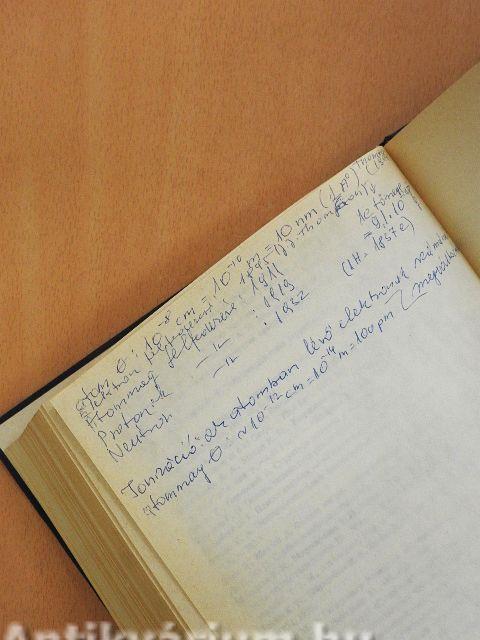 Atom Θ: 10⁻⁸ cm = 10⁻¹⁰ m = 10 nm (1 A°)
Elektron felfedezése: 1895 (J.J. Thompson)
Atommag felfedezése: 1911
Protonok —"— : 1919
Neutron —"— : 1932
1e tömege
= 9,1·10
(1H = 1837e)
Ionizáció: az atomban lévő elektronok számának megváltozása
Atommag Θ: ~10⁻¹² cm = 10⁻¹⁴ m = 100 pm
Antikvárium.hu